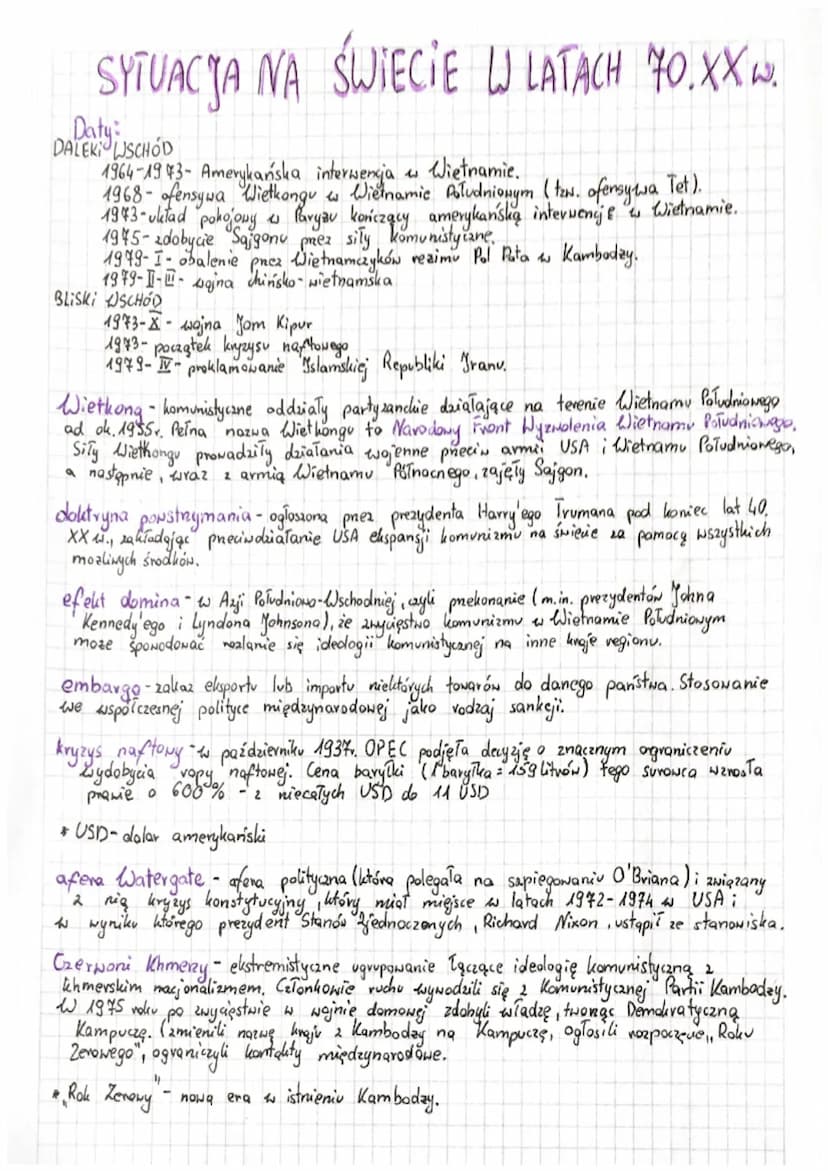 SYTUACJA NA ŚWIECIE W LATACH 70. XX w.
Daty:
DALEKI WSCHÓD
1964-1973- Amerykańska interwencja w Wietnamie.
1968- ofensywa Wietkongu w Wietnamie Południowym (tzw. ofensywa Tet).
1973-układ pokojowy w Paryżu kończący amerykańską interwencję w Wietnamie.
1975- zdobycie Sajgonu przez siły komunistyczne.
1979- I- obalenie przez Wietnamczyków reżimu Pol Pota w Kambodży.
1979-II-III- wojna chińsko-wietnamska
BLISKI WSCHÓD
1973-X- wojna Jom Kipur
1973- początek kryzysu naftowego
1979- IV- proklamowanie Islamskiej Republiki Iranu.
Wietkong - komunistyczne oddziały partyzanckie działające na terenie Wietnamu Południowego
od ok. 1955r. Pełna nazwa Wietkongu to Narodowy Front Wyzwolenia Wietnamu Południowego.
Siły Wietkongu prowadziły działania wojenne przeciw armii USA i Wietnamu Południowego,
a następnie, wraz z armią Wietnamu Północnego, zajęły Sajgon.
doktryna powstrzymania - ogłoszona przez prezydenta Harry'ego Trumana pod koniec lat 40.
XX w., zakładając przeciwdziałanie USA ekspansji komunizmu na świecie za pomocą wszystkich
możliwych środków.
efekt domina - w Azji Południowo-Wschodniej, czyli przekonanie (m.in. prezydentów Johna
Kennedy'ego i Lyndona Johnsona), że zwycięstwo komunizmu w Wietnamie Południowym
może spowodować rozlanie się ideologii komunistycznej na inne kraje regionu.
embargo - zakaz eksportu lub importu niektórych towarów do danego państwa. Stosowanie
we współczesnej polityce międzynarodowej jako rodzaj sankcji.
kryzys naftowy - w październiku 1937r. OPEC podjęła decyzję o znacznym ograniczeniu
wydobycia ropy naftowej. Cena baryłki (1 baryłka = 159 litrów) tego surowca wzrosła
prawie o 600% - z niecałych USD do 11 USD
* USD- dolar amerykański
afera Watergate - afera polityczna (która polegała na szpiegowaniu O'Briana) i związany
z nią kryzys konstytucyjny, który miał miejsce w latach 1972-1974 w USA i
w wyniku którego prezydent Stanów Zjednoczonych, Richard Nixon, ustąpił ze stanowiska.
Czerwoni Khmerzy - ekstremistyczne ugrupowanie łączące ideologię komunistyczną z
khmerskim nacjonalizmem. Członkowie ruchu wywodzili się z Komunistycznej Partii Kambodży.
W 1975 roku po zwycięstwie w wojnie domowej zdobyli władzę, tworząc Demokratyczną
Kampuczę. (zmienili nazwę kraju z Kambodży na Kampuczę, ogłosili rozpoczęcie „Roku
Zerowego", ograniczyli kontakty międzynarodowe.
* „Rok Zerowy" - nowa era w istnieniu Kambodży.